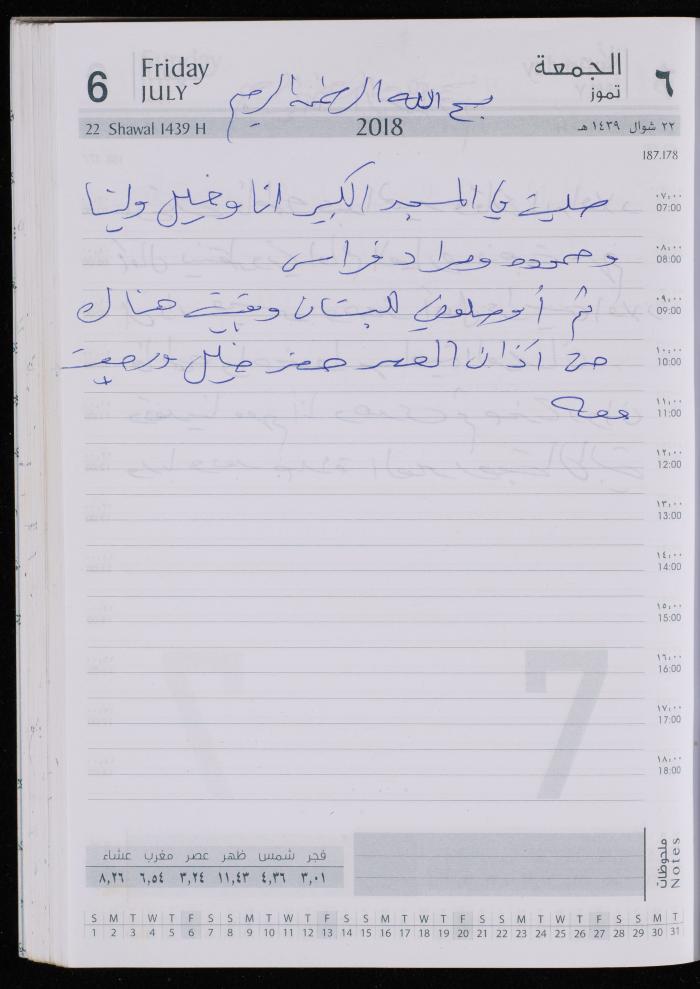 6
Friday
JULY
الجمعة
تموز
٦
بسم الله الرحمن الرحيم
22 Shawal 1439 H
2018
٢٢ شوال ١٤٣٩ هـ
187.178
٠٧:٠٠
07:00
صليت في المسجد الكبير انا وخليل
٠٨:٠٠
08:00
وحموده ومراد فراس
٠٩:٠٠
09:00
ثم أوصلوني للبستان وبقيت هناك
١٠:٠٠
10:00
حتى اذان العصر حضر خليل ورجعت
١١:٠٠
11:00
معه
١٢:٠٠
12:00
١٣:٠٠
13:00
١٤:٠٠
14:00
١٥:٠٠
15:00
١٦:٠٠
16:00
١٧:٠٠
17:00
١٨:٠٠
18:00
7
فجر شمس ظهر عصر مغرب عشاء
٣,٠١ ٤,٣٦ ١١,٤٣ ٣,٢٤ ٦,٥٤ ٨,٢٦
ملحوظات
Notes
S M T W T F S S M T W T F S S M T W T F S S M T W T F S S M T
1 2 3 4 5 6 7 8 9 10 11 12 13 14 15 16 17 18 19 20 21 22 23 24 25 26 27 28 29 30 31